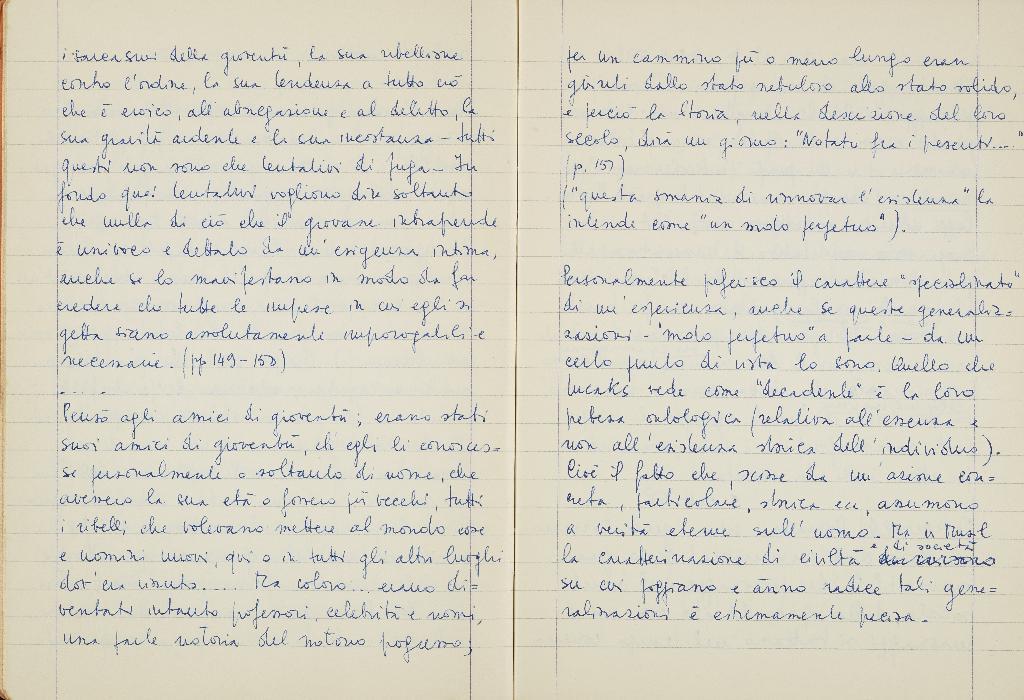 i sarcasmi della gioventù, la sua ribellione
contro l'ordine, la sua tendenza a tutto ciò
che è eroico, all'abnegazione e al delitto, la
sua gravità ardente e la sua incostanza – tutti
questi non sono che tentativi di fuga – In
fondo quei tentativi vogliono dire soltanto
che nulla di ciò che il giovane intraprende
è univoco e dettato da un'esigenza intima,
anche se lo manifestano in modo da far
credere che tutte le imprese in cui egli si
getta siano assolutamente improrogabili e
necessarie. (pp 149-150)
....
Pensò agli amici di gioventù; erano stati
suoi amici di gioventù, che egli li conosces=
se personalmente o soltanto di nome, che
avessero la sua età o fossero più vecchi, tutti
i ribelli, che volevano mettere al mondo cose
e uomini nuovi, qui o in tutti gli altri luoghi
dov'era vissuto..... Ma coloro... erano di=
ventati intanto professori, celebrità e nomi,
una parte notoria del notorio progresso;
per un cammino più o meno lungo eran
giunti dallo stato nebuloso allo stato solido,
e perciò la Storia, nella descrizione del loro
secolo, dirà un giorno: "Notato fra i presenti...."
(p. 157)
("questa smania di rinnovar l'esistenza" la
intende come "un moto perpetuo").
Personalmente preferisco il carattere "specializzato"
di un'esperienza, anche se queste generaliz=
zazioni - "moto perpetuo" a parte – da un
certo punto di vista lo sono. Quello che
Lucaks vede come "decadente" è la loro
pretesa ontologica (relativa all'essenza e
non all'esistenza storica dell'individuo).
Cioè il fatto che, scisse da un'azione con=
creta, particolare, storica ecc, assumono
a verità eterne sull'uomo. Ma in Musil
la caratterizzazione di civiltà e di società
su cui poggiano e ànno radice tali gene=
ralizzazioni è estremamente precisa.